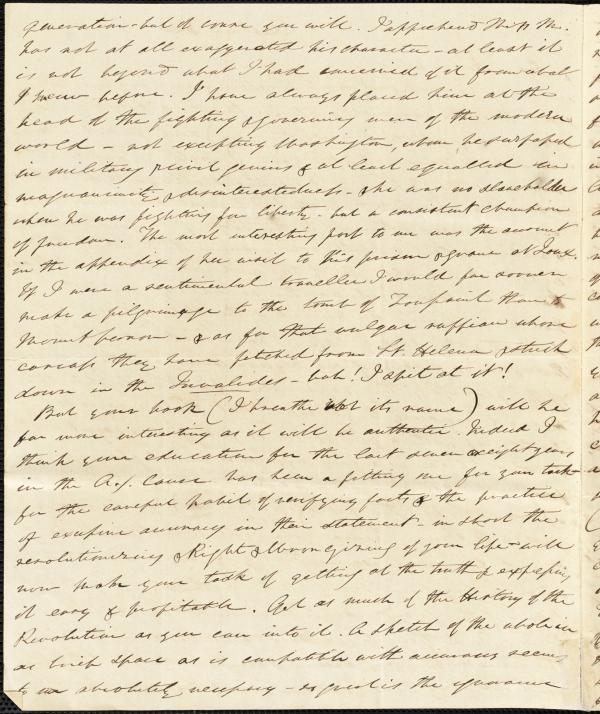 generation - but of course you will. I apprehend Miss M.
has not at all exaggerated his character - at least it
is not beyond what I had conceived of it from what
I knew before. I have always placed him at the
head of the fighting & governing men of the modern
world - not excepting Washington, whom he surpassed
in military & civil genius & at least equalled in
magnanimity & disinterestedness - & he was no slaveholder
when he was fighting for liberty - but a consistent champion
of freedom. The most interesting part to me was the account
in the appendix of her visit to his prison & grave at Joux.
If I were a sentimental traveller I would far sooner
make a pilgrimage to the tomb of Toussaint than to
Mount Vernon - & as for that vulgar ruffian whose
carcass they have fetched from St. Helena & stuck
down in the Invalides - bah! I spit at it!
But your book (I breathe not its name) will be
far more interesting as it will be authentic. Indeed I
think your education for the last seven or eight years
in the A. S. Cause has been a fitting one for your task -
for the careful habit of verifying facts & the practice
of excessive accuracy in their statement - in short the
resolutionizing & Right & Wronging of your life - will
now make your task of getting at the truth & expressing
it easy & profitable. Get as much of the History of the
Revolution as you can into it. A sketch of the whole in
as brief space as is compatible with accuracy seems
to me absolutely necessary - so great is the ignorance